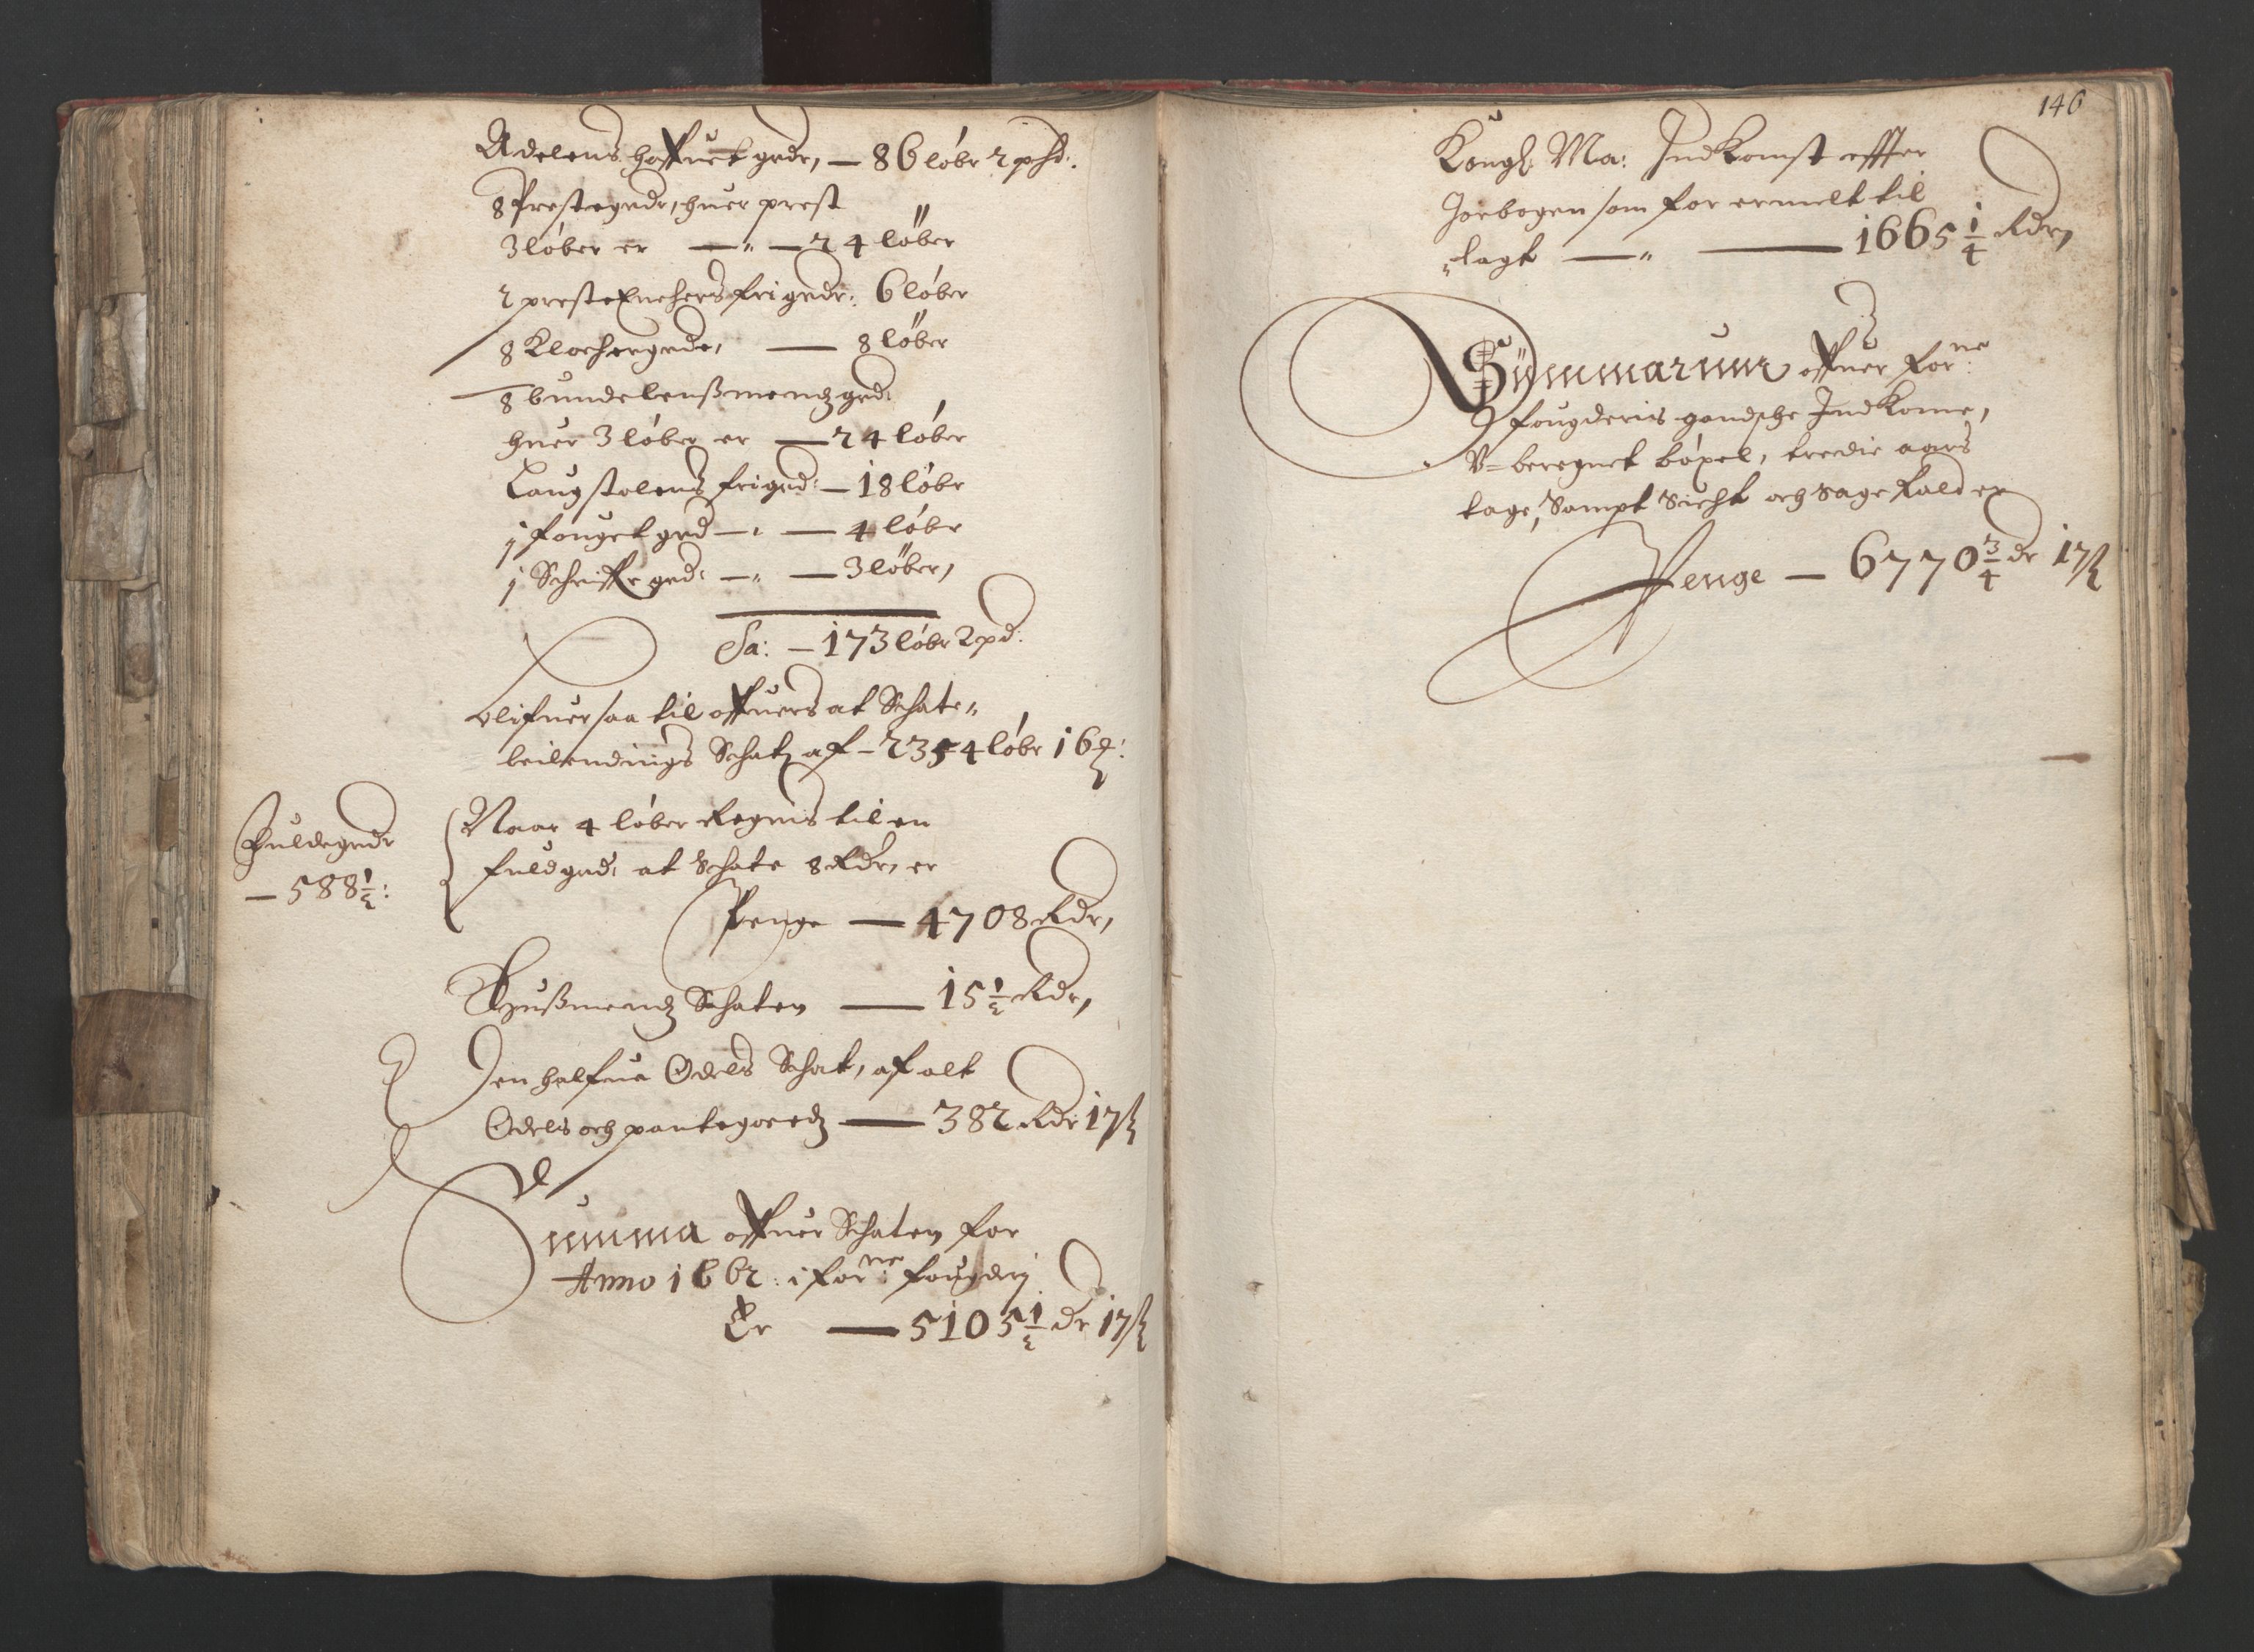 Adelens hoffuet grdr, — 86 løbr 2 phd:
8 Prestegrdr, huer prest
3 løber er — " — 24 løber
2 preste Enchers fri grdr: 6 løber
8 Klochergrde, — 8 løber
8 bundelensmendz grd:
huer 3 løber er — 24 løber
Laugstolens frigrd: — 18 løbr
j fouget grd — " — 4 løbr
j Schriffr grd: — " — 3 løber,
Sa: — 173 løbr 2 pd:
Blifuer saa til offuers at Schate"
leilendings Schatz af — 2354 løbr 16
Fuldegrdr
— 588½:
Naar 4 løber Regnis til en
fuld grd: at Schate 8 Rdr, er
Penge — 4708 Rdr,
Huusmendz Schaten — 15½ Rdr,
Den halfue Odels Schat, af alt
Odels och pantegoedz — 382 Rdr 17 ß
Summa offuer Schaten for
Anno 1662: i forne: fougderj
Er — 5105½ dr 17 ß
146
Kongl: Ma: Indkomst effter
Jorbogen som for ermelt til
"lagt — " — 1665¼ Rdr,
Summarum offuer forne:
fougderis gandsche Indkome,
V=beregnet bøxel, tredie aars
tage, Sampt Sicht och Sagefald er
Penge — 6770¾ dr 17 ß